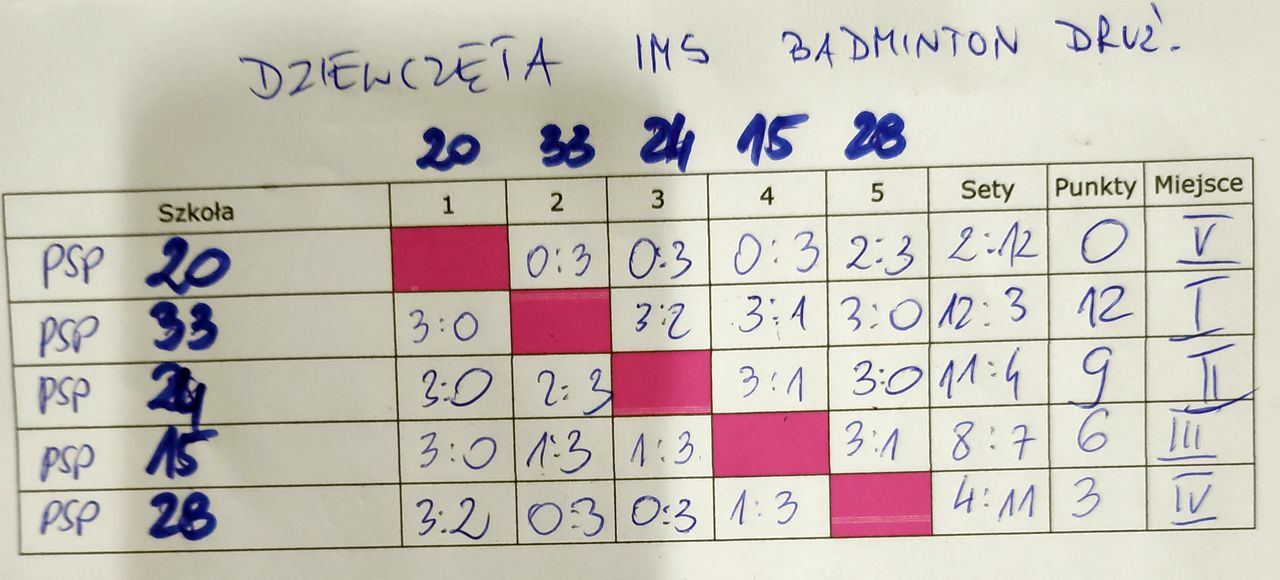 DZIEWCZĘTA IMS BADMINTON DRUŻ.
20 33 24 15 28
Szkoła 1 2 3 4 5 Sety Punkty Miejsce
PSP 20 0:3 0:3 0:3 2:3 2:12 0 V
PSP 33 3:0 3:2 3:1 3:0 12:3 12 I
PSP 24 3:0 2:3 3:1 3:0 11:4 9 II
PSP 15 3:0 1:3 1:3 3:1 8:7 6 III
PSP 28 3:2 0:3 0:3 1:3 4:11 3 IV